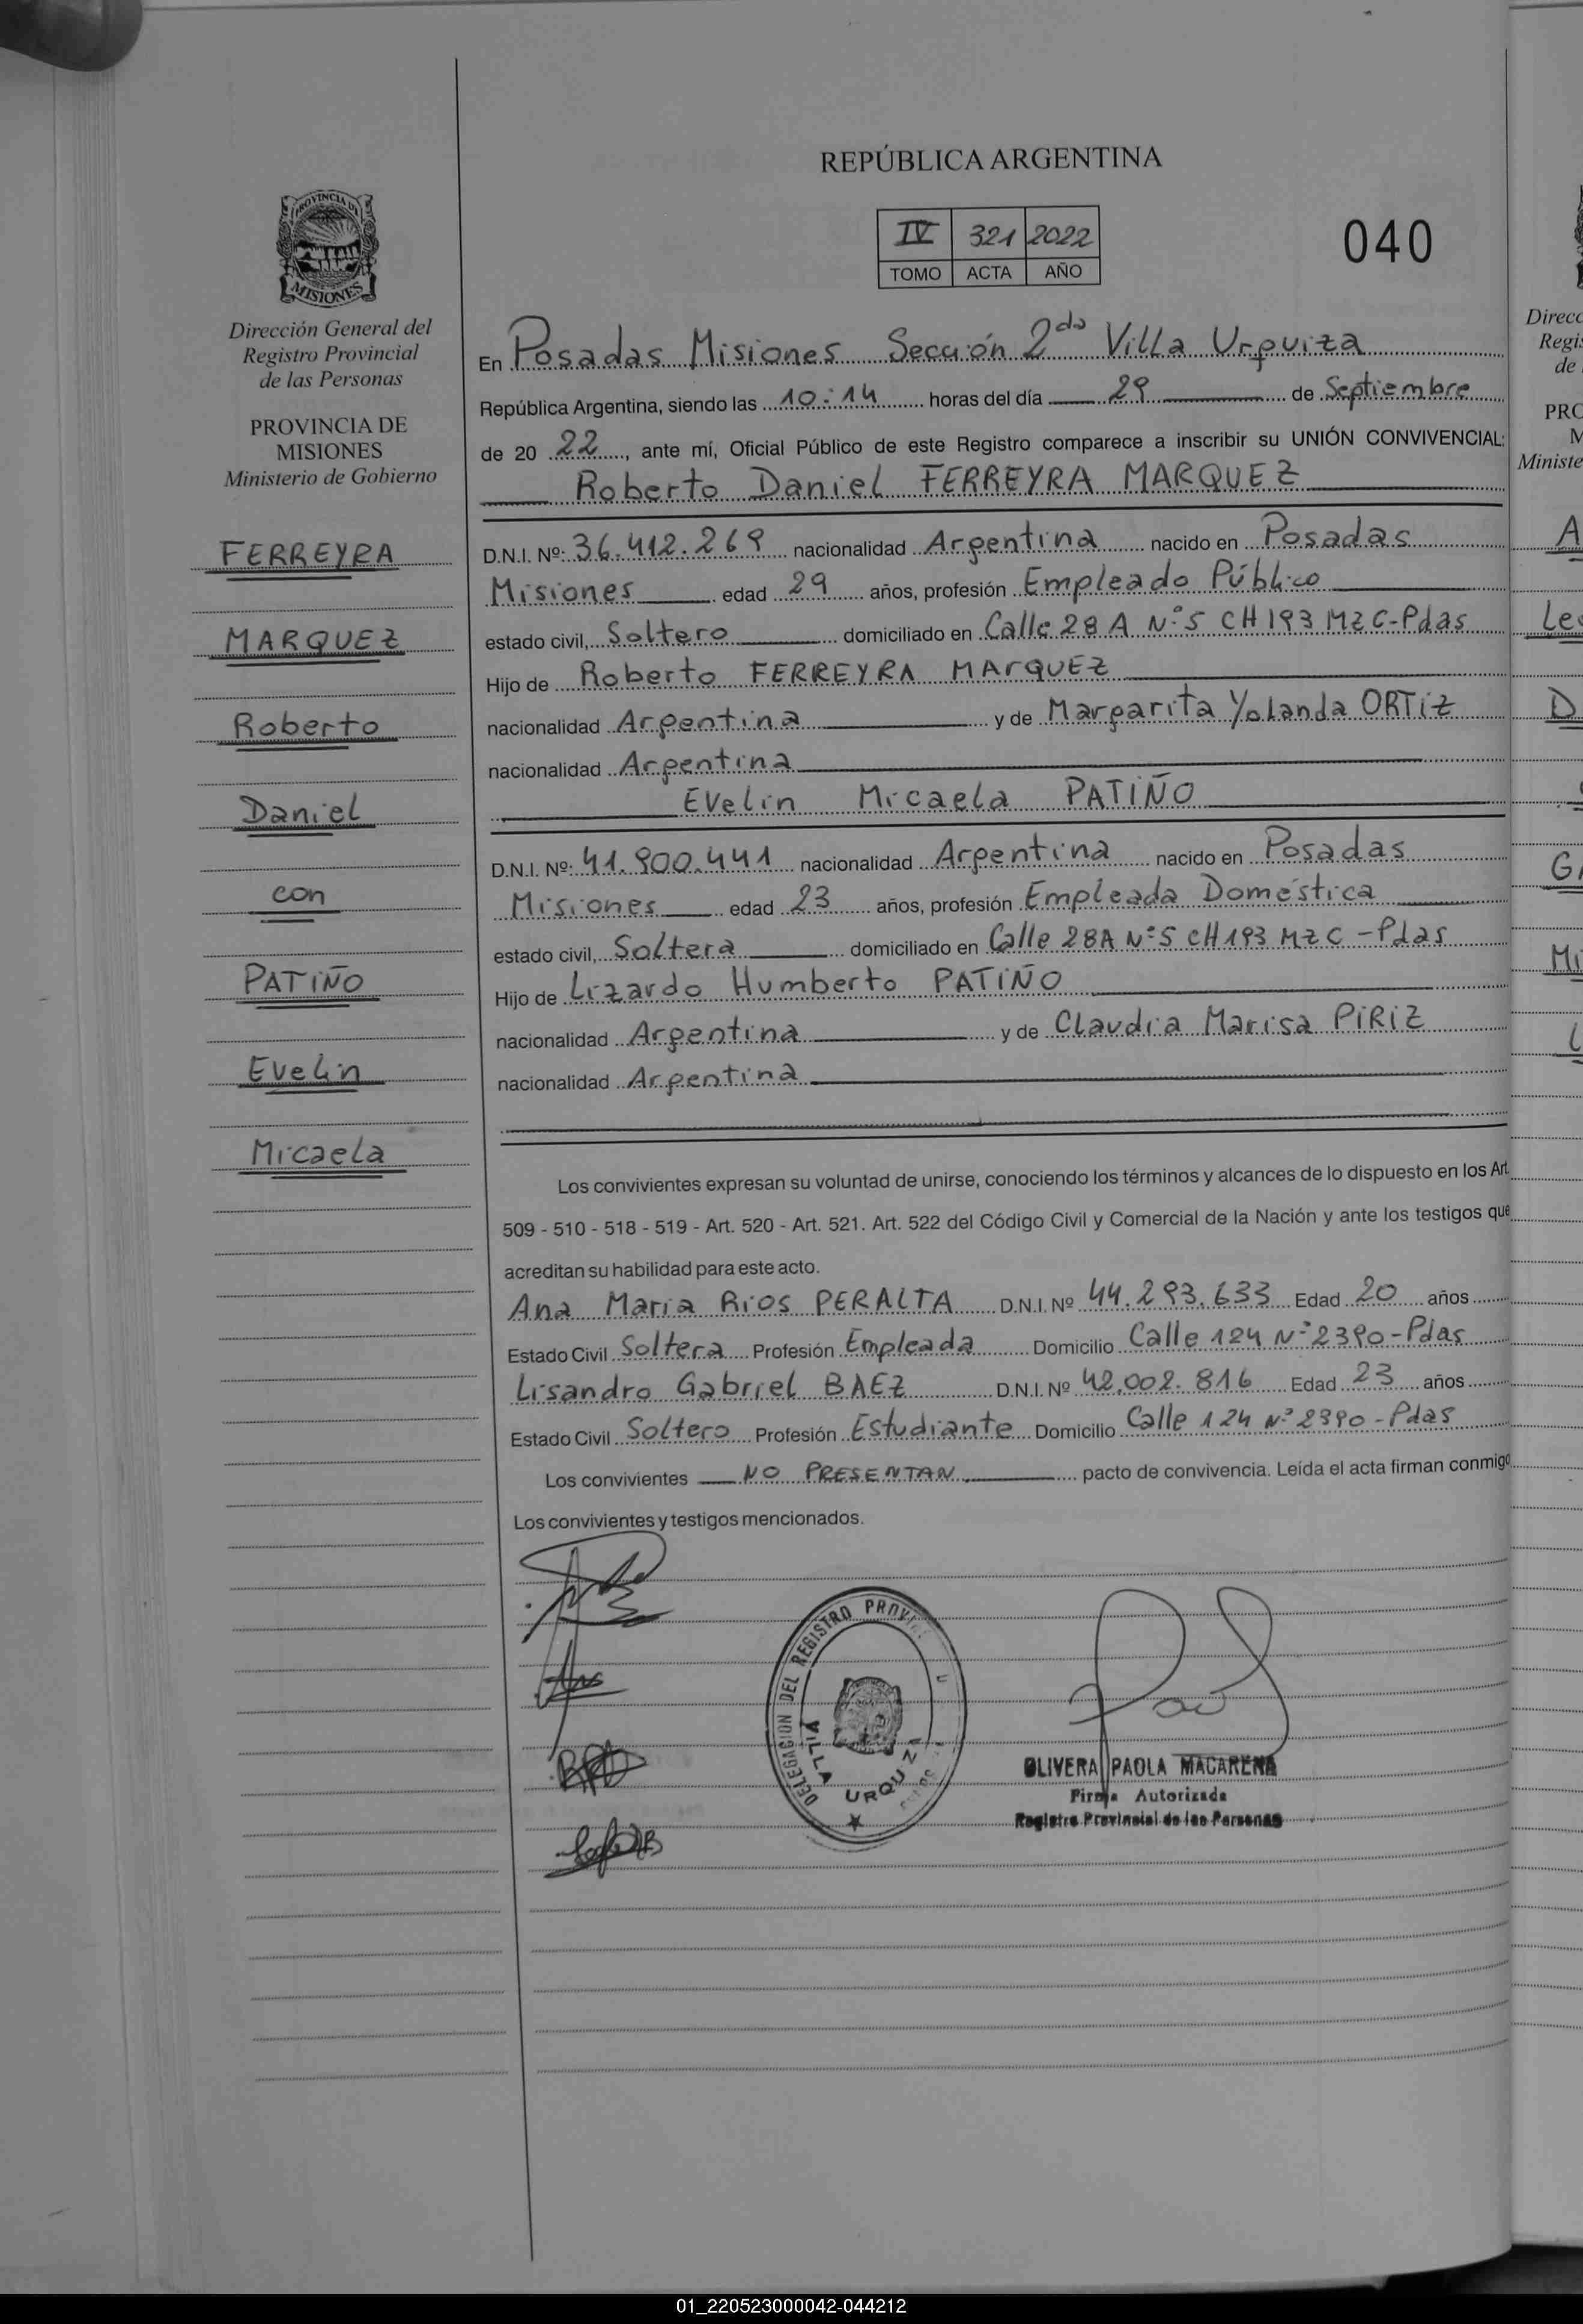 REPÚBLICA ARGENTINA
IV 321 2022
TOMO ACTA AÑO
040
PROVINCIA DE
MISIONES
Dirección General del
Registro Provincial
de las Personas
PROVINCIA DE
MISIONES
Ministerio de Gobierno
FERREYRA
MARQUEZ
Roberto
Daniel
con
PATIÑO
Evelin
Micaela
En Posadas Misiones Sección 2da Villa Urquiza
República Argentina, siendo las 10:14 horas del día 29 de Septiembre
de 20 22, ante mí, Oficial Público de este Registro comparece a inscribir su UNIÓN CONVIVENCIAL:
Roberto Daniel FERREYRA MARQUEZ
D.N.I. Nº: 36.412.269 nacionalidad Argentina nacido en Posadas
Misiones edad 29 años, profesión Empleado Público
estado civil, Soltero domiciliado en Calle 28 A Nº 5 CH 193 MZ C-Pdas
Hijo de Roberto FERREYRA MARQUEZ
nacionalidad Argentina y de Margarita Yolanda ORTIZ
nacionalidad Argentina
Evelin Micaela PATIÑO
D.N.I. Nº: 41.900.441 nacionalidad Argentina nacido en Posadas
Misiones edad 23 años, profesión Empleada Doméstica
estado civil, Soltera domiciliado en Calle 28A Nº 5 CH 193 MZ C - Pdas
Hijo de Lizardo Humberto PATIÑO
nacionalidad Argentina y de Claudia Marisa PIRIZ
nacionalidad Argentina
Los convivientes expresan su voluntad de unirse, conociendo los términos y alcances de lo dispuesto en los Art.
509 - 510 - 518 - 519 - Art. 520 - Art. 521. Art. 522 del Código Civil y Comercial de la Nación y ante los testigos que
acreditan su habilidad para este acto.
Ana Maria Rios PERALTA D.N.I. Nº 44.293.633 Edad 20 años
Estado Civil Soltera Profesión Empleada Domicilio Calle 124 Nº 2390-Pdas
Lisandro Gabriel BAEZ D.N.I. Nº 42.002.816 Edad 23 años
Estado Civil Soltero Profesión Estudiante Domicilio Calle 124 Nº 2390 - Pdas
Los convivientes NO PRESENTAN pacto de convivencia. Leída el acta firman conmigo
Los convivientes y testigos mencionados.
DELEGACION DEL REGISTRO
VILLA URQUIZA
OLIVERA PAOLA MACARENA
Firma Autorizada
Registro Provincial de las Personas
Direcc
Regis
de
PRO
M
Ministe
A
D
Mi
01_220523000042-044212